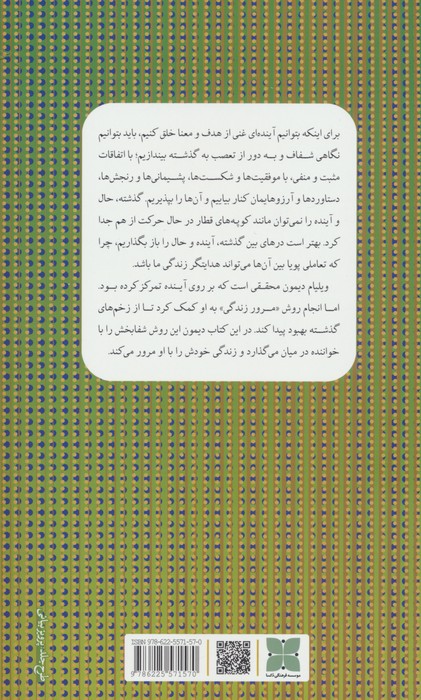 برای اینکه بتوانیم آینده‌ای غنی از هدف و معنا خلق کنیم، باید بتوانیم
نگاهی شفاف و به دور از تعصب به گذشته بیندازیم؛ با اتفاقات
مثبت و منفی، با موفقیت‌ها و شکست‌ها، پشیمانی‌ها و رنجش‌ها،
دستاوردها و آرزوهایمان کنار بیاییم و آن‌ها را بپذیریم. گذشته، حال
و آینده را نمی‌توان مانند کوپه‌های قطار در حال حرکت از هم جدا
کرد. بهتر است درهای بین گذشته، آینده و حال را باز بگذاریم، چرا
که تعاملی پویا بین آن‌ها می‌تواند هدایتگر زندگی ما باشد.
ویلیام دیمون محققی است که بر روی آینده تمرکز کرده بود.
اما انجام روش «مرور زندگی» به او کمک کرد تا از زخم‌های
گذشته بهبود پیدا کند. در این کتاب دیمون این روش شفابخش را با
خواننده در میان می‌گذارد و زندگی خودش را با او مرور می‌کند.
ISBN 978-622-5571-57-0
9 786225 571570
موسسه فرهنگی دکسا